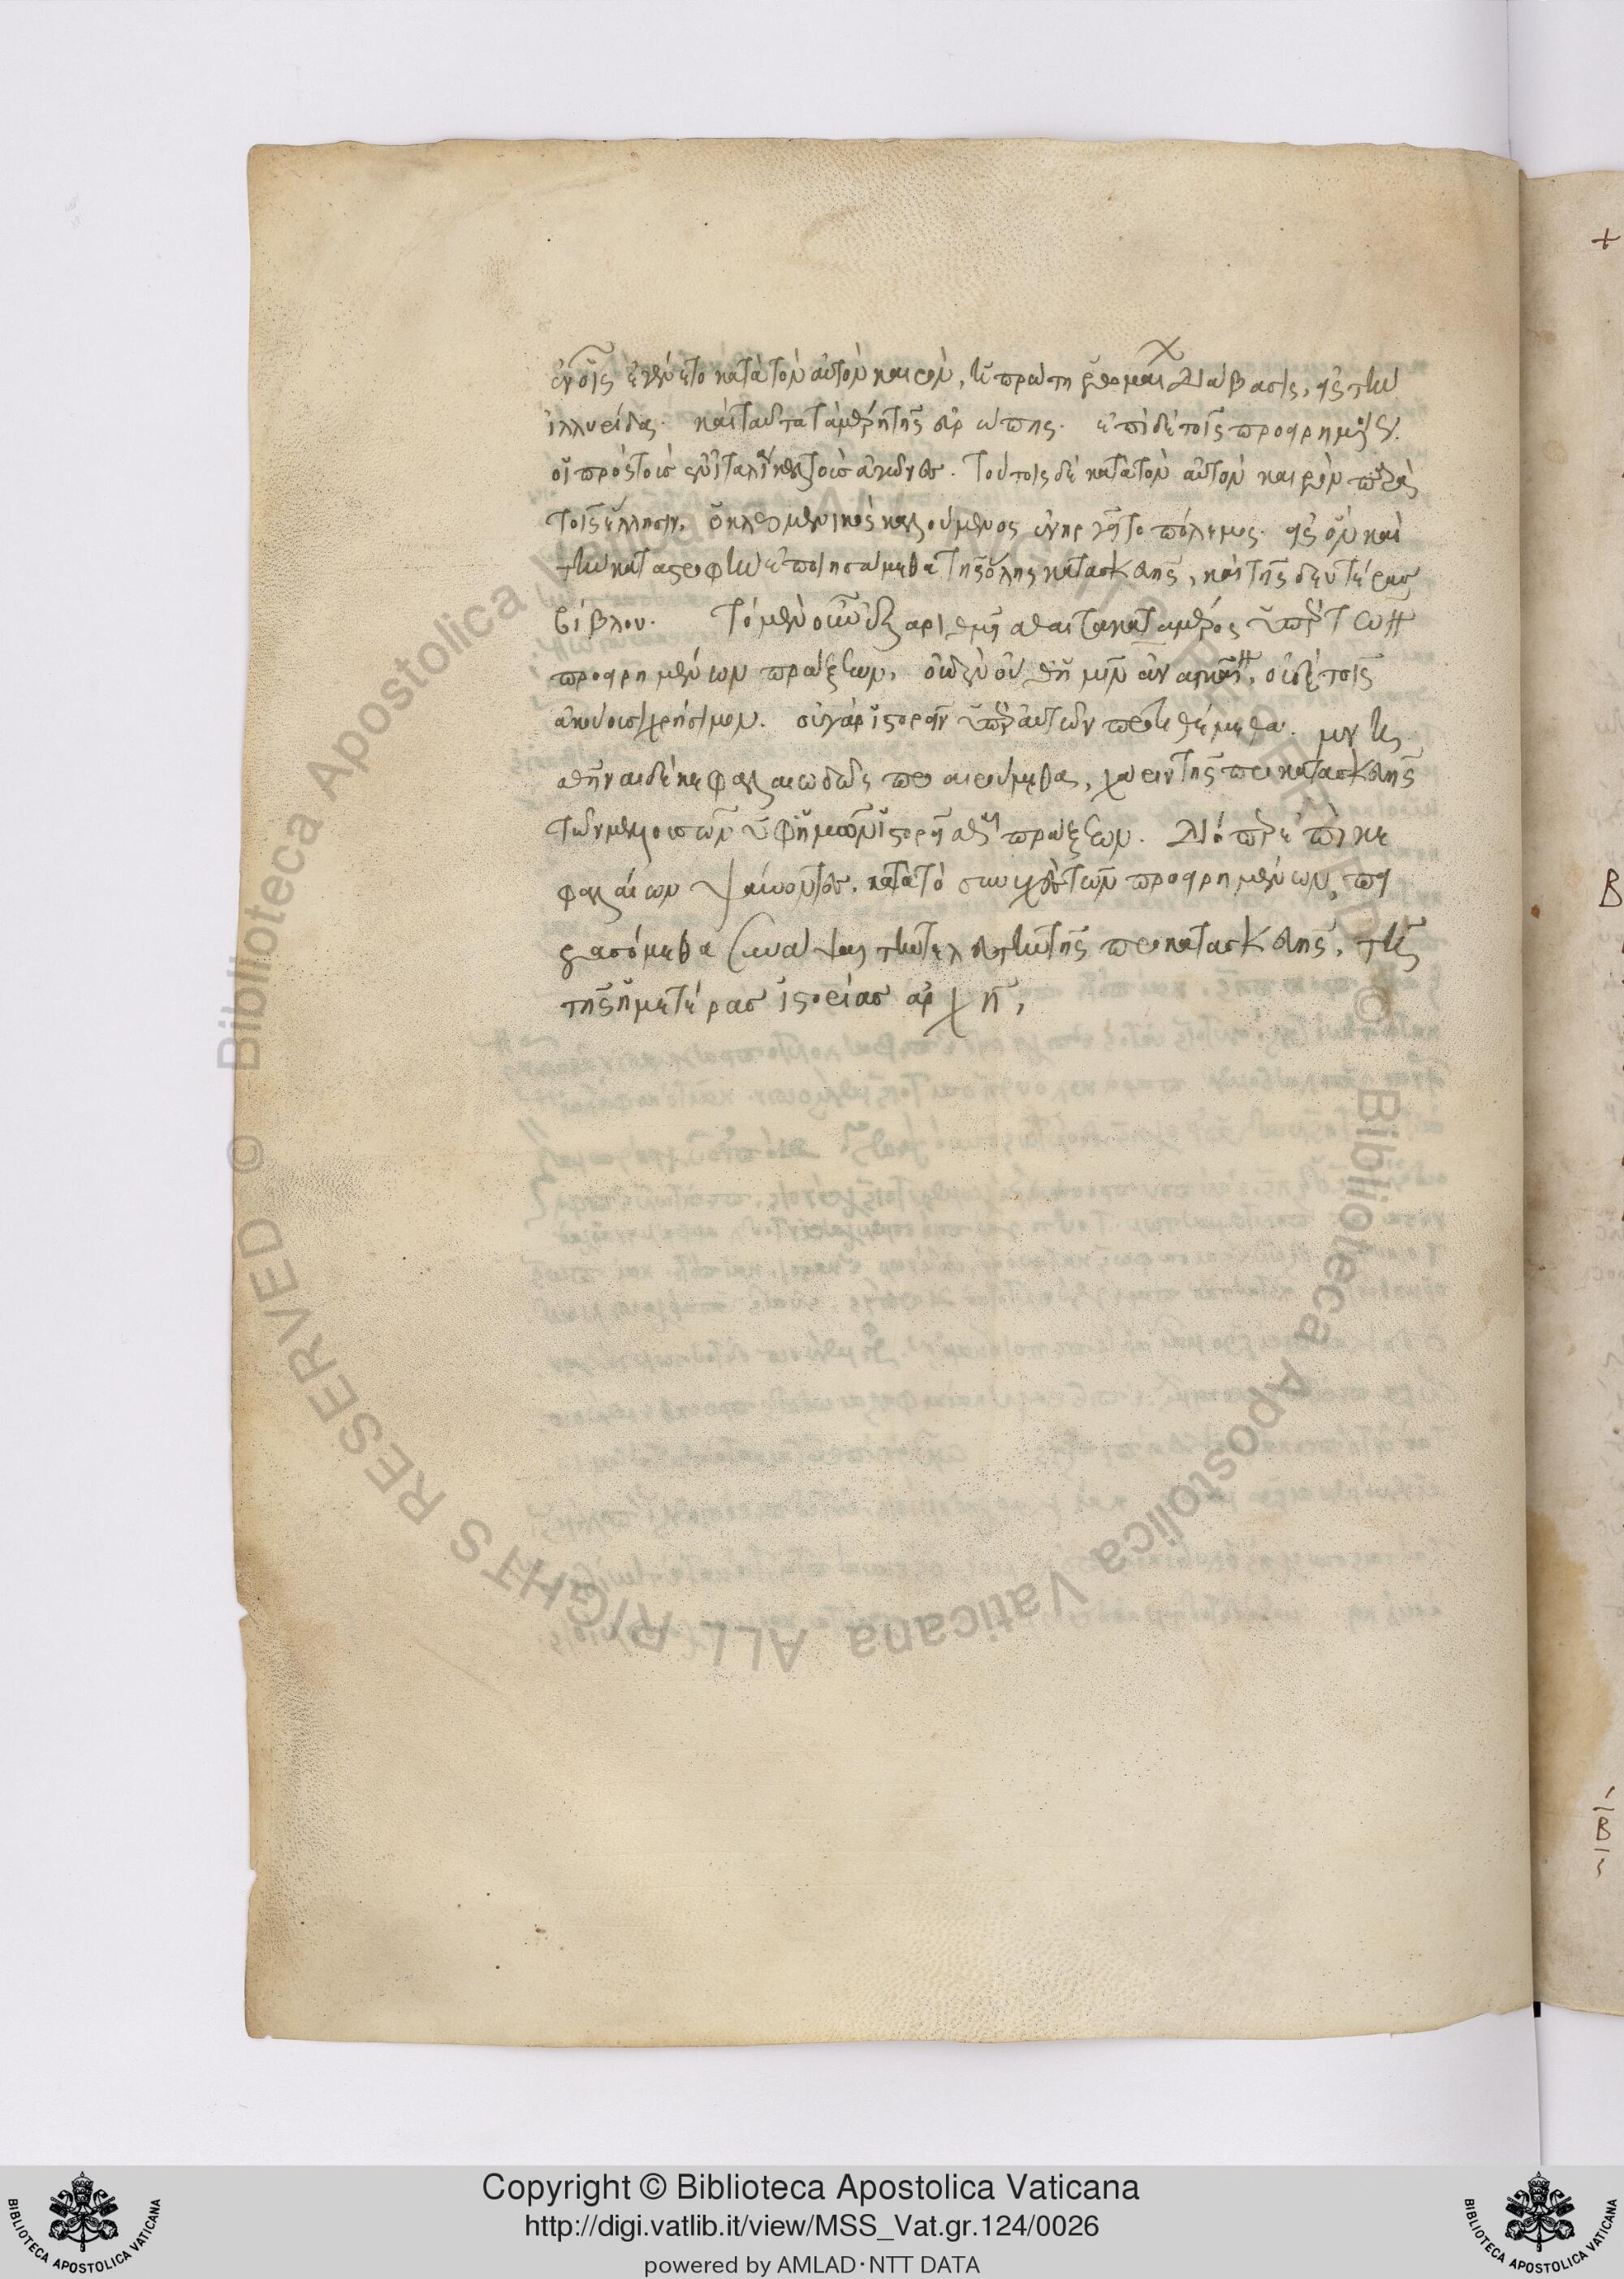 ἐν οἷς ἐγένετο κατὰ τὸν αὐτὸν καιρὸν, ἡ πρώτη ῥωμαί διάβασις, εἰς τὴν
ἰλλυρίδα. καὶ ταύτα τὰ μέρη τῆς εὐρώπης. ἐπὶ δὲ τοῖς προειρημένοις
οἱ πρὸς τοὺς ἐν ἰταλία κελτοὺς ἀγῶνες. τούτοις δὲ κατὰ τὸν αὐτὸν καιρὸν παρὰ
τοῖς ἕλλησιν, ὁ κλεομενικὸς καλούμενος ἐνηργεῖτο πόλεμος. εἰς ὃν καὶ
τὴν καταστροφὴν ἐποιησάμεθα τῆς ὅλης κατασκευῆς, καὶ τῆς δευτέρας
βίβλου. τὸ μὲν οὖν ἐξαριθμεῖσθαι τὰ κατὰ μέρος ὑπὲρ τῶν
προειρημένων πράξεων, οὐδὲν οὔθ' ἡμῖν ἀναγκαῖον, οὐδὲ τοῖς
ἀκούουσι χρήσιμον. οὐ γὰρ ἱστορεῖν ὑπὲρ αὐτῶν προτιθέμεθα. μνησ
θῆναι δὲ κεφαλαιωδῶς προαιρούμεθα, χάριν τῆς προκατασκευῆς
τῶν μελλουσῶν ὑφ' ἡμῶν ἱστορεῖσθαι πράξεων. διόπερ ἐπὶ κε
φαλαίων ψαύοντες, κατὰ τὸ συνεχὲς τῶν προειρημένων, πει
ρασόμεθα συνάψαι τὴν τελευτὴν τῆς προκατασκευῆς, τῇ
τῆς ἡμετέρας ἱστορίας ἀρχῇ,
+
Β
Β
Copyright © Biblioteca Apostolica Vaticana
http://digi.vatlib.it/view/MSS_Vat.gr.124/0026
powered by AMLAD·NTT DATA
BIBLIOTECA APOSTOLICA VATICANA
BIBLIOTECA APOSTOLICA VATICANA
Biblioteca Apostolica Vaticana ALL RIGHTS RESERVED ©